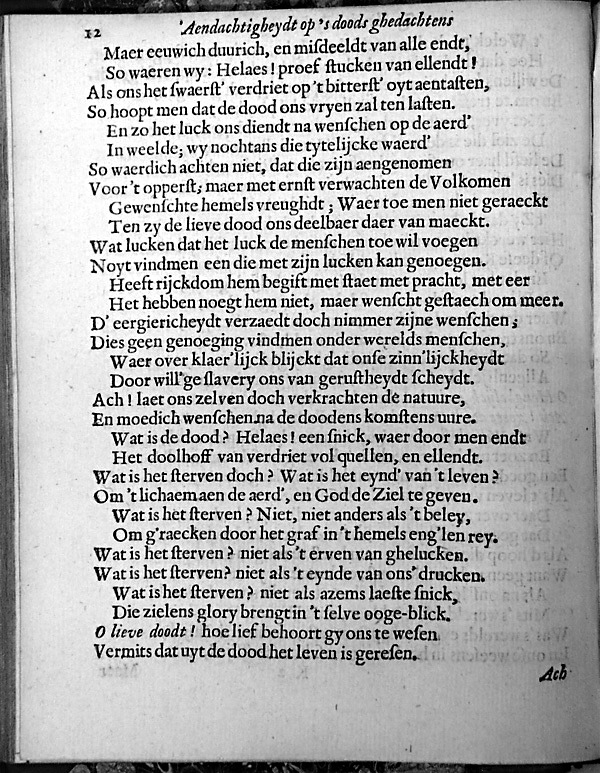 12 'Aendachtigheydt op 's doods ghedachtens
Maer eeuwich duurich, en miſdeeldt van alle endt,
So waeren wy: Helaes! proef ſtucken van ellendt!
Als ons het ſwaerſt' verdriet op 't bitterſt' oyt aentaſten,
So hoopt men dat de dood ons vryen zal ten laſten.
En zo het luck ons diendt na wenſchen op de aerd'
In weelde; wy nochtans die tytelijcke waerd'
So waerdich achten niet, dat die zijn aengenomen
Voor 't opperſt; maer met ernſt verwachten de Volkomen
Gewenſchte hemels vreughdt; Waer toe men niet geraeckt
Ten zy de lieve dood ons deelbaer daer van maeckt.
Wat lucken dat het luck de menſchen toe wil voegen
Noyt vindmen een die met zijn lucken kan genoegen.
Heeft rijckdom hem begift met ſtaet met pracht, met eer
Het hebben noegt hem niet, maer wenſcht geſtaech om meer.
D' eergiericheydt verzaedt doch nimmer zijne wenſchen;
Dies geen genoeging vindmen onder werelds menſchen,
Waer over klaer'lijck blijckt dat onſe zinn'lijckheydt
Door will'ge ſlavery ons van geruſtheydt ſcheydt.
Ach! laet ons zelven doch verkrachten de natuure,
En moedich wenſchen na de doodens komſtens uure.
Wat is de dood? Helaes! een ſnick, waer door men endt
Het doolhoff van verdriet vol quellen, en ellendt.
Wat is het ſterven doch? Wat is het eynd' van 't leven?
Om 't lichaem aen de aerd', en God de Ziel te geven.
Wat is het ſterven? Niet, niet anders als 't beley,
Om g'raecken door het graf in 't hemels eng'len rey.
Wat is het ſterven? niet als 't erven van ghelucken.
Wat is het ſterven? niet als 't eynde van ons' drucken.
Wat is het ſterven? niet als azems laeſte ſnick,
Die zielens glory brengt in 't ſelve ooge-blick.
O lieve doodt! hoe lief behoort gy ons te weſen
Vermits dat uyt de dood het leven is gereſen.
Ach